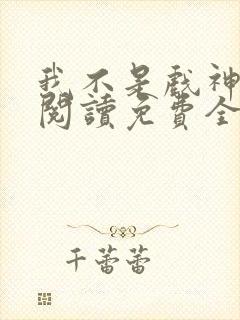 我不是戲神
閱讀免費全
千蕾蕾